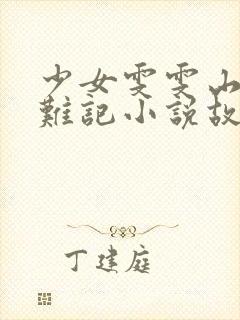 少女雯雯山
難記小說故
丁建庭